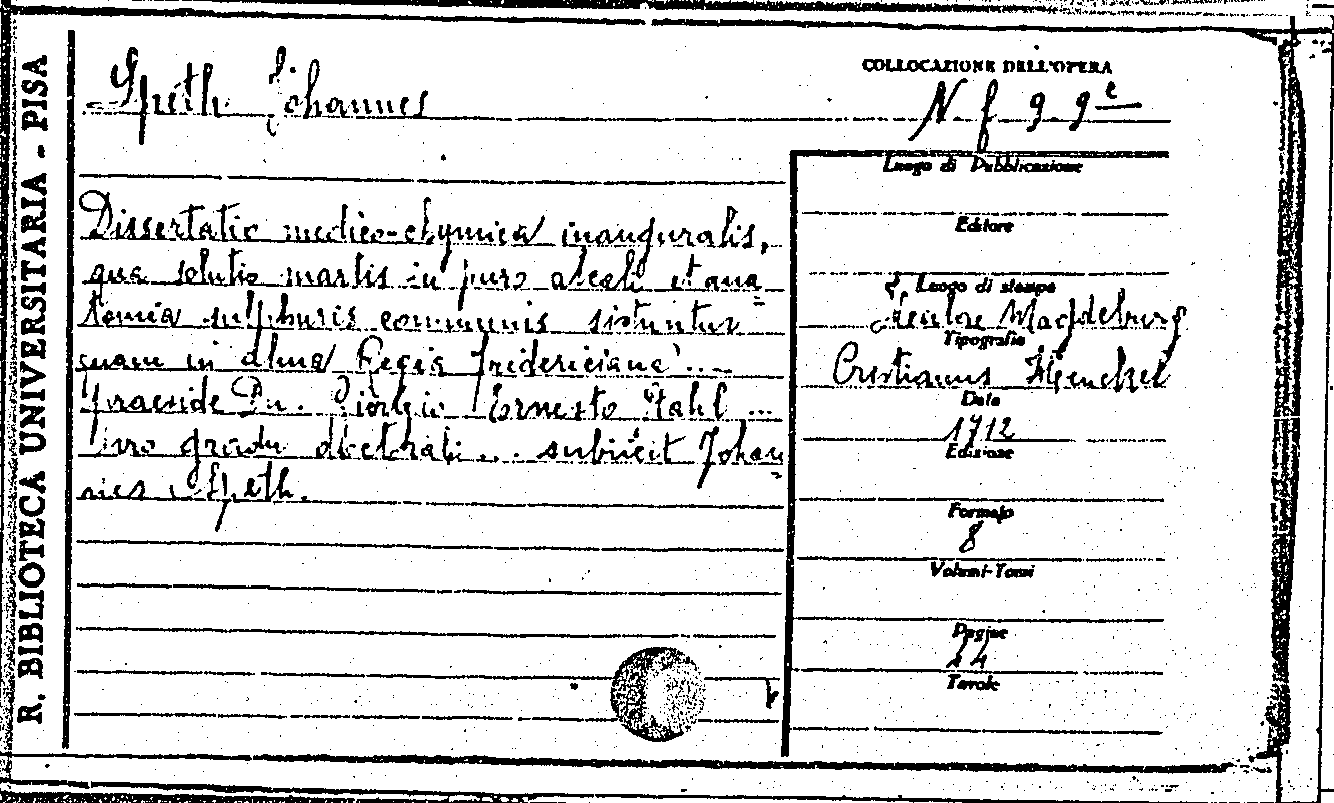 R. BIBLIOTECA UNIVERSITARIA - PISA
Speth Johannes
COLLOCAZIONE DELL'OPERA
N f 9 9 e
Dissertatio medico-chymica inauguralis,
qua solutio martis in puro alcali et ana
tomia sulphuris communis sistuntur
quam in alma Regia Fridericiana ...
praeside Dn. Giorgio Ernesto Stahl ...
pro gradu doctorali ... subiicit Johan
nes Speth.
Luogo di Pubblicazione
Editore
Luogo di stampa
Magdeburg
Tipografia
Cristianus Henckel
Data
1712
Edizione
Formato
8
Volumi-Tomi
Pagine
24
Tavole